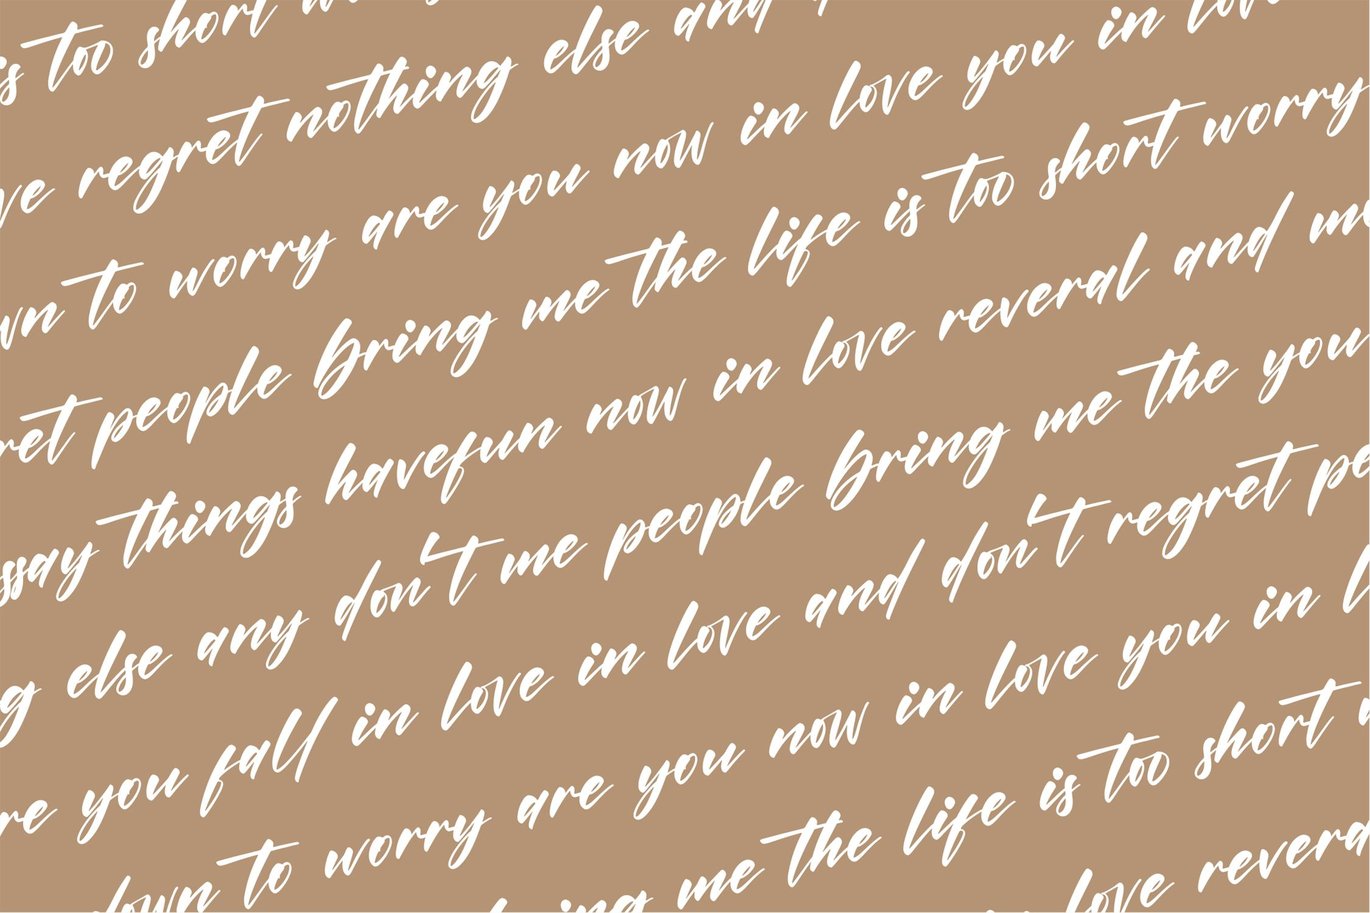 is too short
ve regret nothing else and
wn to worry are you now in love you in love
ret people bring me the life is too short worry
ssay things havefun now in love reveral and
g else any don't me people bring me the you
re you fall in love in love and don't regret pe
down to worry are you now in love you in l
bring me the life is too short
love revera